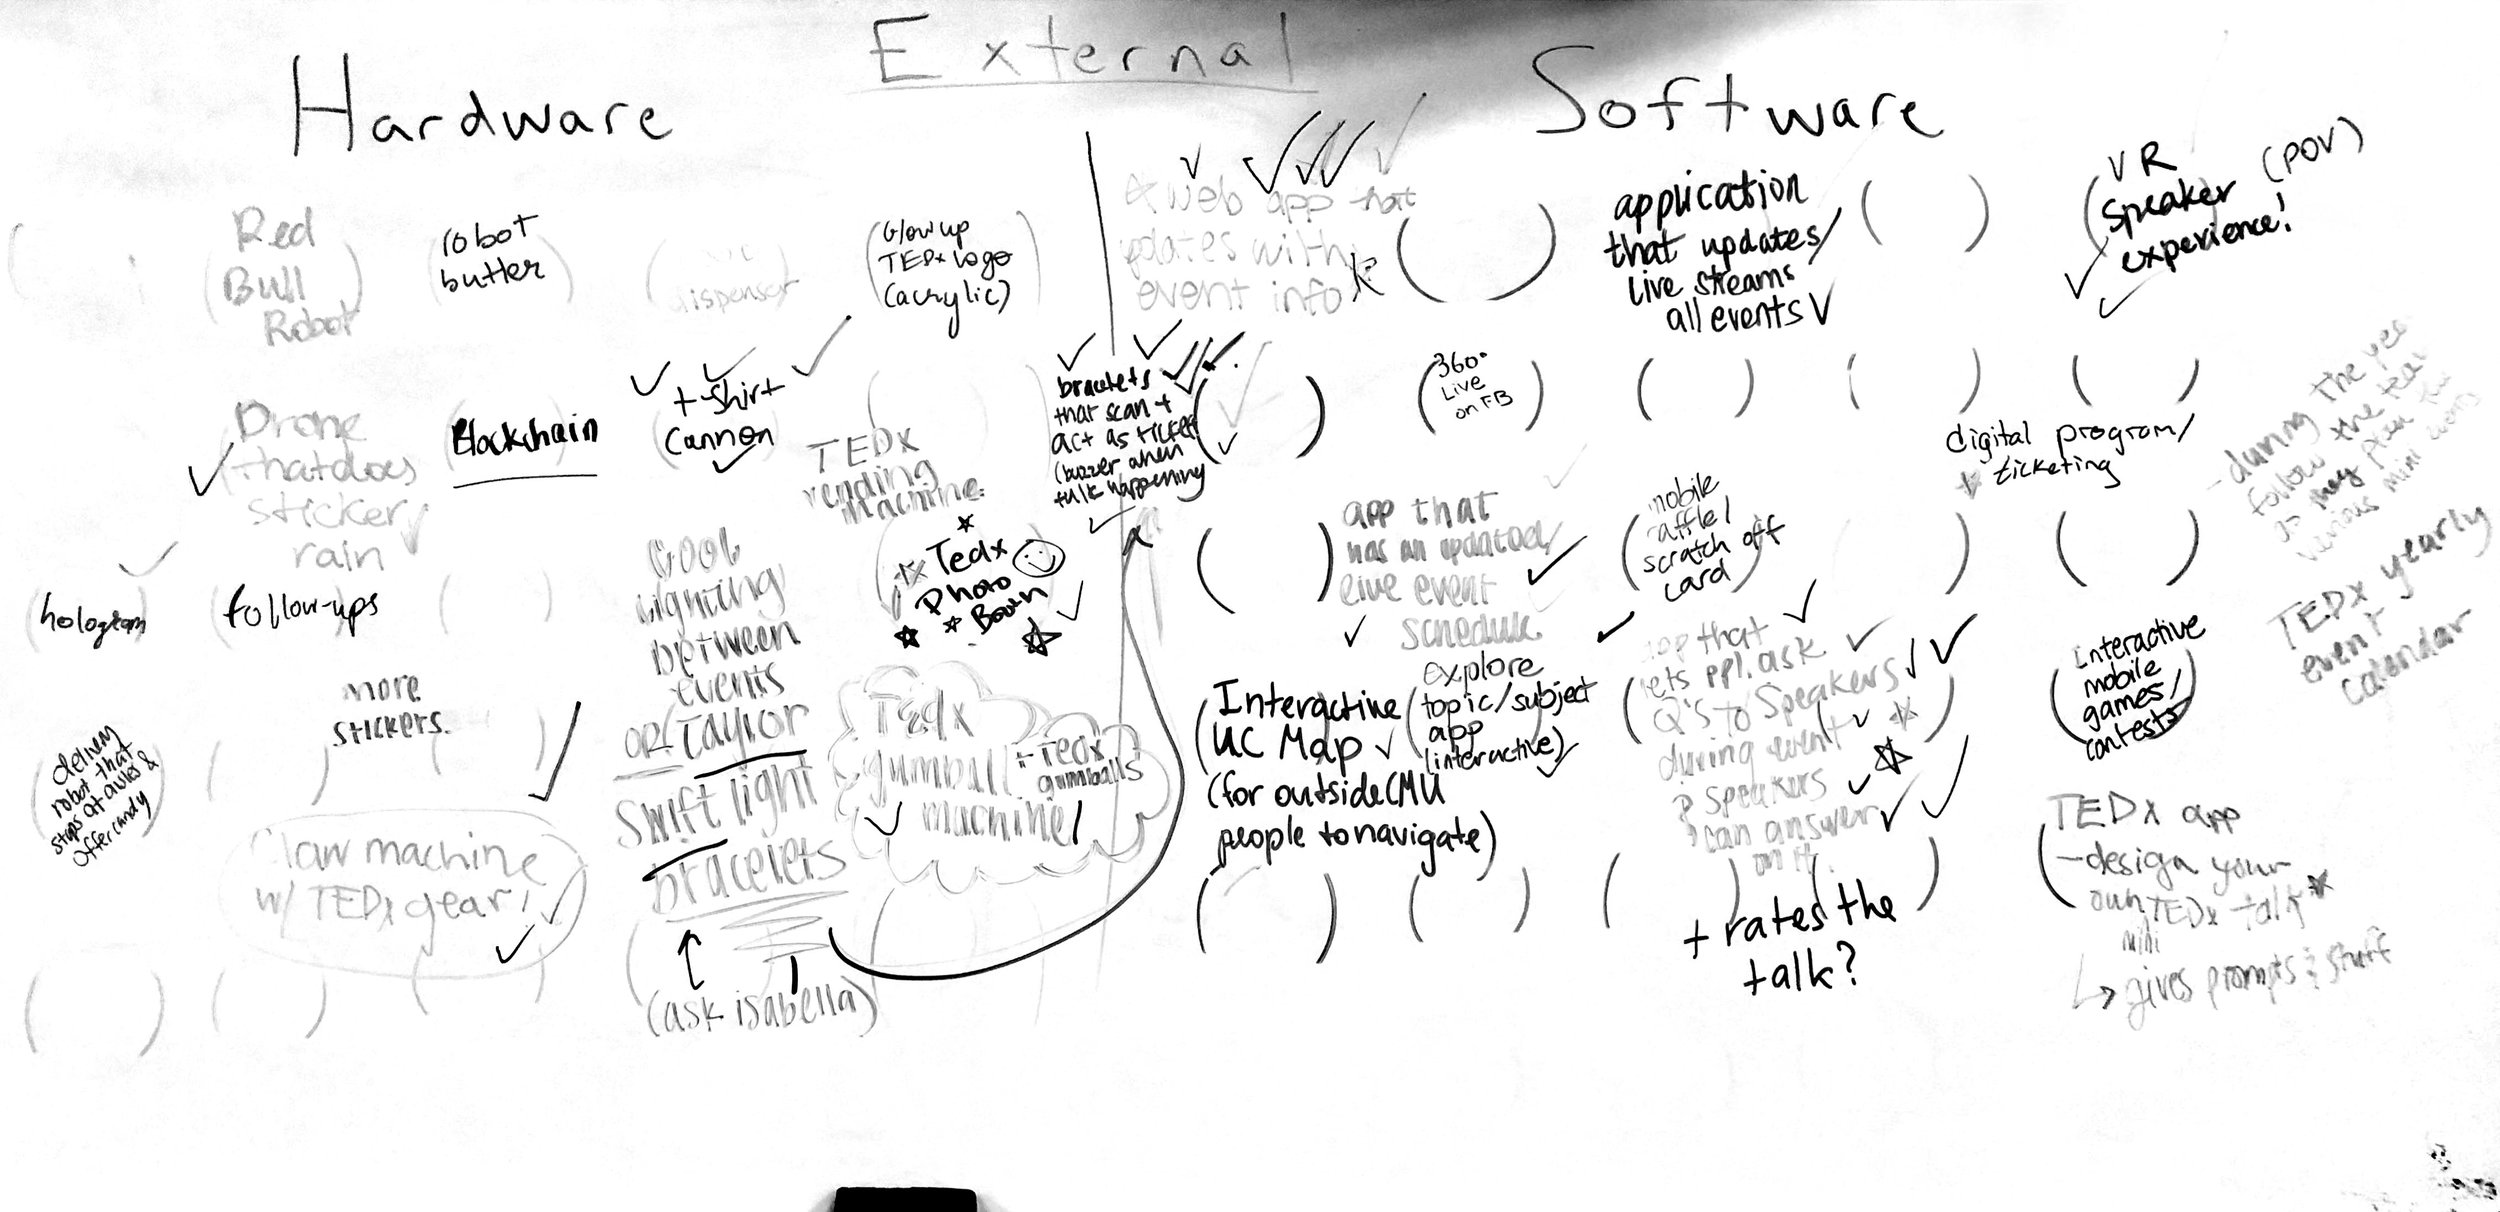 External
Hardware
Red
Bull
Robot
robot
butter
dispenser
Glow up
TEDx logo
(acrylic)
Drone
that does
sticker
rain
Blockchain
t-shirt
Cannon
TEDx
vending
machine
bracelets
that scan +
act as ticket
(buzzer when
talk happening
hologram
follow-ups
Cool
lighting
between
events
OR Taylor
Swift light
bracelets
(ask isabella)
Tedx
Photo
Booth
more
stickers
delivery
robot that
stops at aisles &
offer candy
Claw machine
w/ TEDx gear!
Tedx
gumball
machine!
+ Tedx
gumballs
Software
A web app that
updates with
event info
application
that updates/
live streams
all events
VR
Speaker (POV)
experience!
360°
Live
on FB
digital program/
ticketing
- during the year
follow the team
as they plan the
various mini
TEDx yearly
event
calendar
app that
has an updated/
live event
schedule
mobile
raffle/
scratch off
card
Interactive
UC Map
(for outside CMU
people to navigate)
Explore
topic/subject
app
(interactive)
app that
lets ppl. ask
Q's to Speakers
during event
& speakers
can answer
on it.
+ rates the
talk?
interactive
mobile
games/
contests
TEDx app
- design your
own TEDx talk
mini
↳ gives prompts & stuff